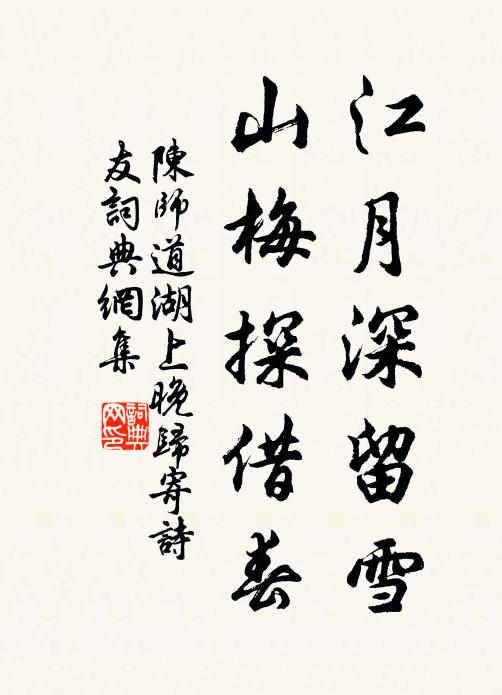 江月深留雪
山梅探借春
陳師道湖上晚歸寄詩
友詞典網集
詞典
网印